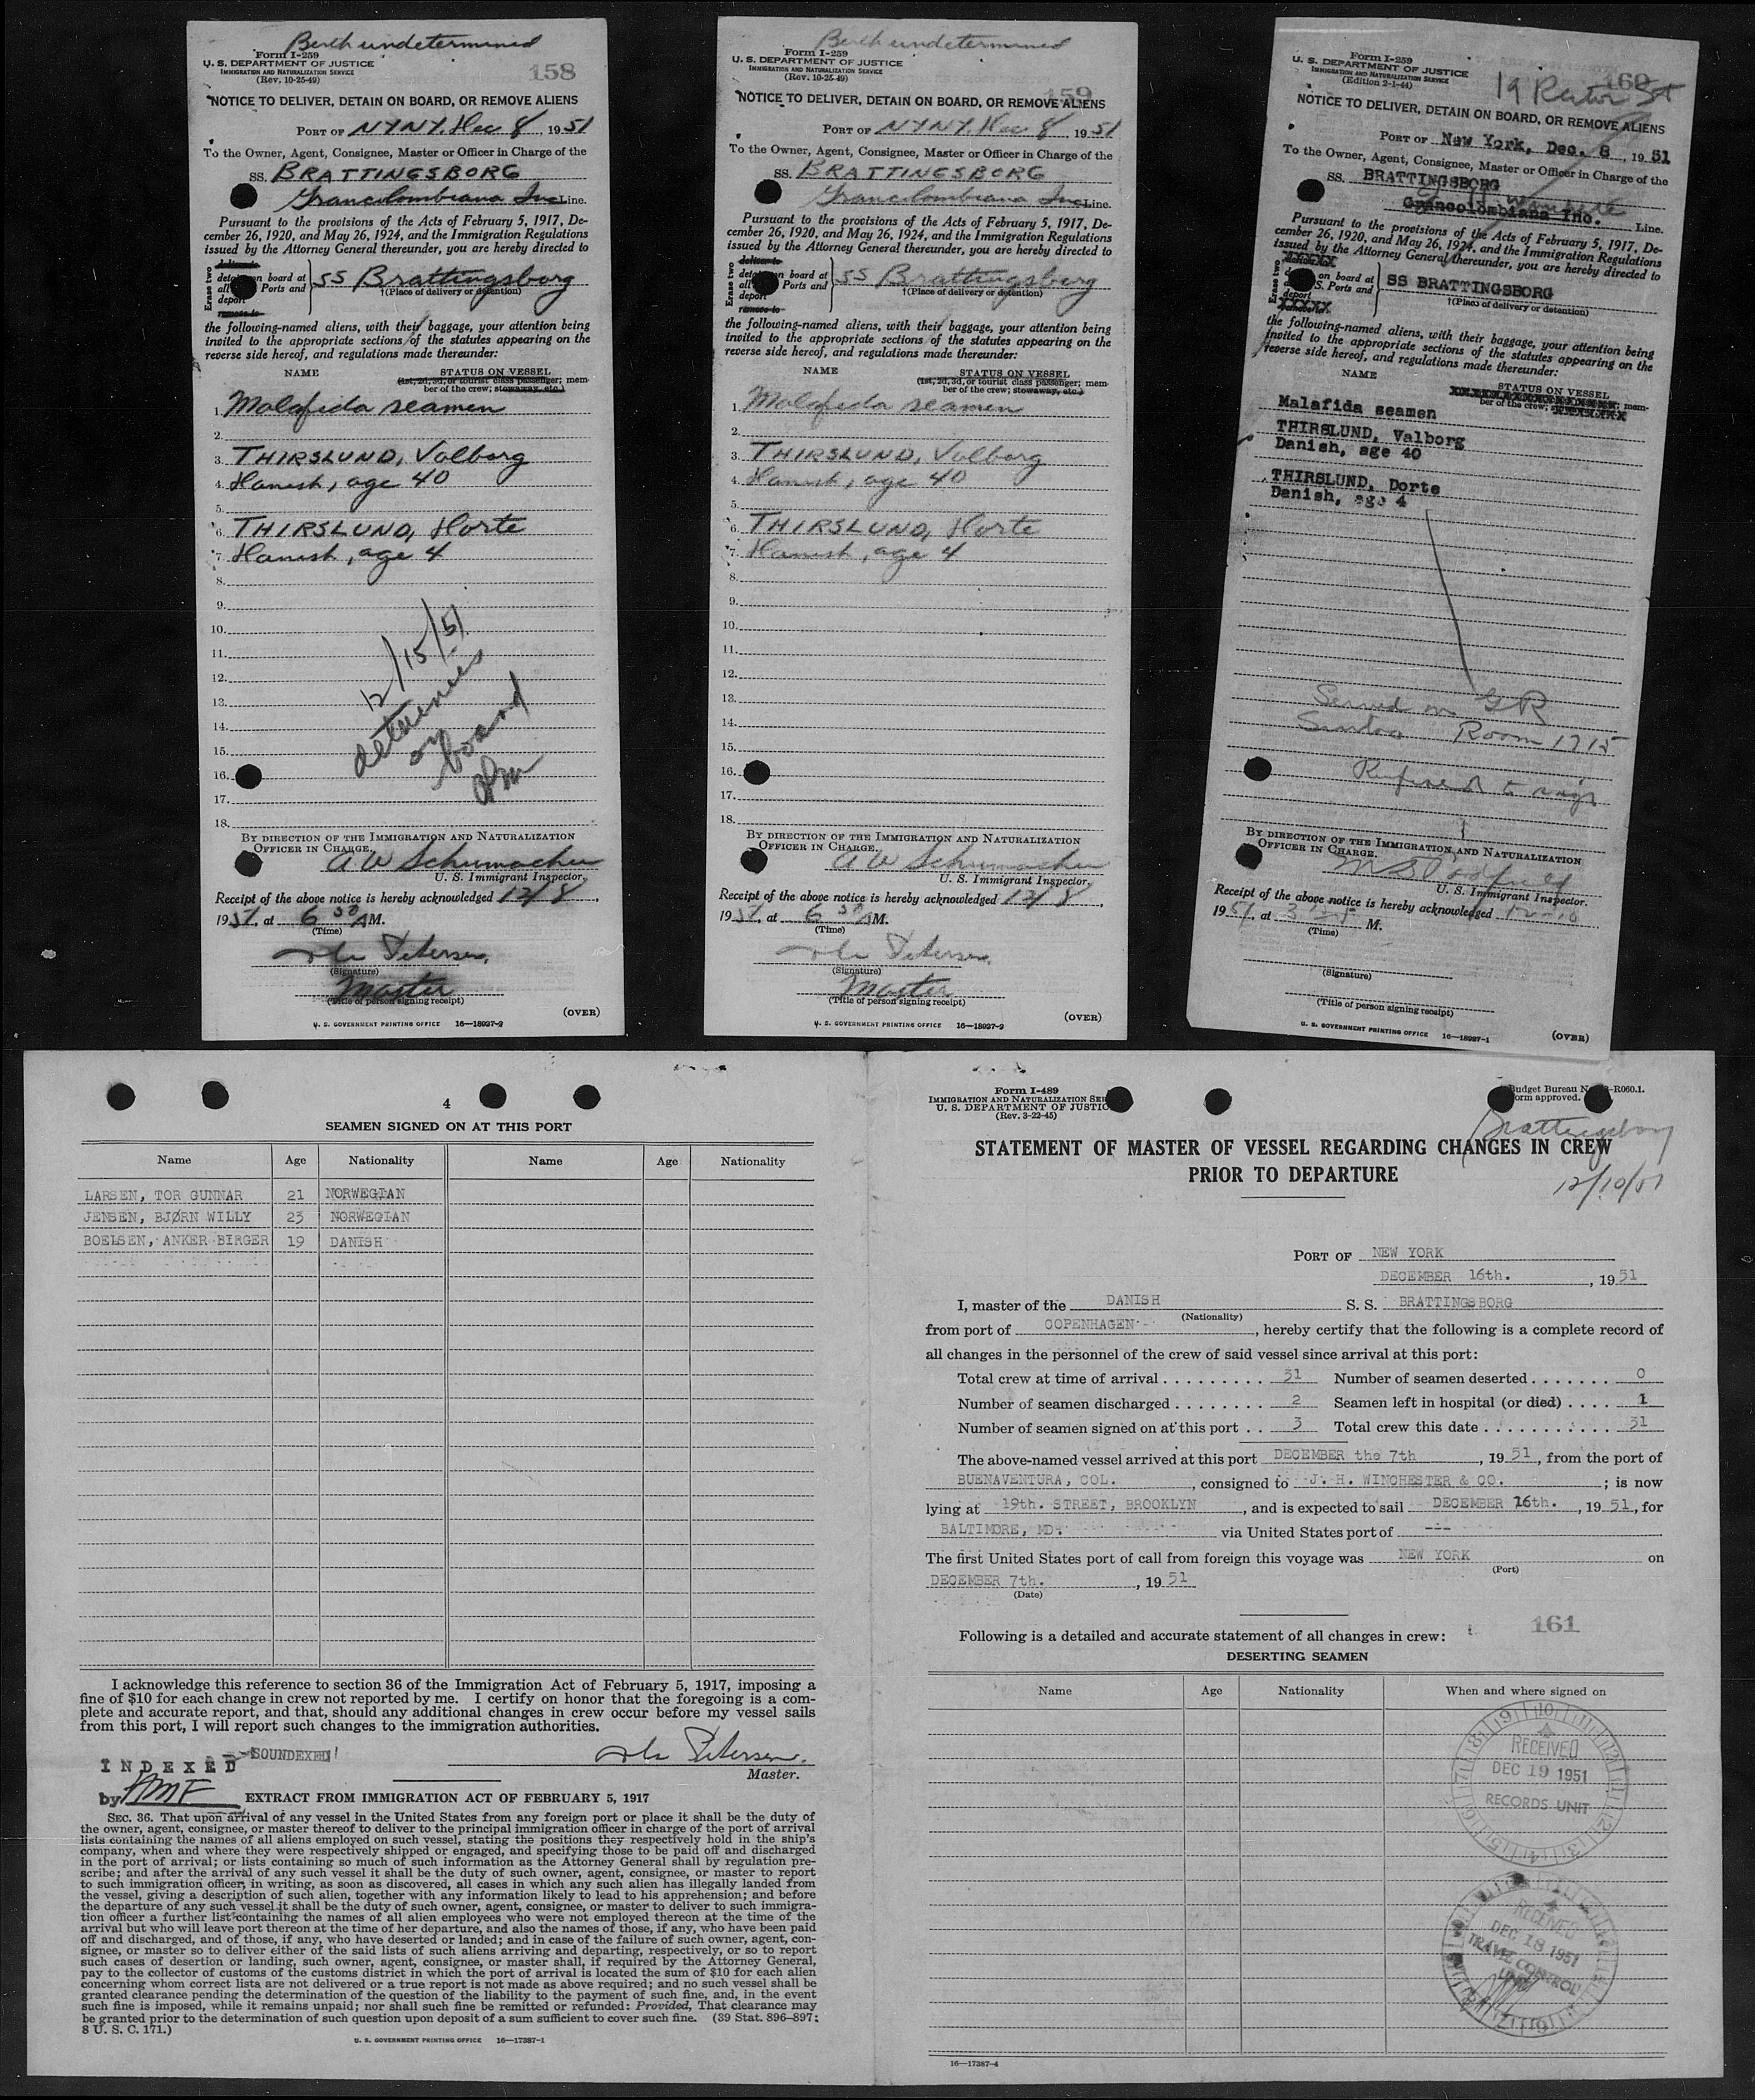 Berth undetermined
Form I-259
U. S. DEPARTMENT OF JUSTICE
IMMIGRATION AND NATURALIZATION SERVICE
(Rev. 10-25-49)
158
NOTICE TO DELIVER, DETAIN ON BOARD, OR REMOVE ALIENS
PORT OF NYNY. Dec 8, 1951
To the Owner, Agent, Consignee, Master or Officer in Charge of the
SS. BRATTINGSBORG
Grancolombiana Inc Line.
Pursuant to the provisions of the Acts of February 5, 1917, De-
cember 26, 1920, and May 26, 1924, and the Immigration Regulations
issued by the Attorney General thereunder, you are hereby directed to
Erase two
deliver to
on board at
all Ports and
deport
remove to
SS Brattingsborg
†(Place of delivery or detention)
the following-named aliens, with their baggage, your attention being
invited to the appropriate sections of the statutes appearing on the
reverse side hereof, and regulations made thereunder:
NAME STATUS ON VESSEL
(1st, 2d, 3d, or tourist class passenger; mem-
ber of the crew; stowaway, etc.)
1. Malafida seamen
2.
3. THIRSLUND, Valborg
4. Danish, age 40
5.
6. THIRSLUND, Dorte
7. Danish, age 4
8.
9.
10.
11.
12.
13.
14.
15.
16.
17.
18.
12/15/51
detainees
on
board
BY DIRECTION OF THE IMMIGRATION AND NATURALIZATION
OFFICER IN CHARGE.
A W Schumacher
U. S. Immigrant Inspector.
Receipt of the above notice is hereby acknowledged 12/8,
1951, at 6 30 A M.
(Time)
Petersen.
(Signature)
Master
(Title of person signing receipt)
(OVER)
U. S. GOVERNMENT PRINTING OFFICE 16—18927-2
Berth undetermined
Form I-259
U. S. DEPARTMENT OF JUSTICE
IMMIGRATION AND NATURALIZATION SERVICE
(Rev. 10-25-49)
159
NOTICE TO DELIVER, DETAIN ON BOARD, OR REMOVE ALIENS
PORT OF NYNY. Dec 8, 1951
To the Owner, Agent, Consignee, Master or Officer in Charge of the
SS. BRATTINGSBORG
Grancolombiana Inc Line.
Pursuant to the provisions of the Acts of February 5, 1917, De-
cember 26, 1920, and May 26, 1924, and the Immigration Regulations
issued by the Attorney General thereunder, you are hereby directed to
Erase two
deliver to
on board at
all Ports and
deport
remove to
SS Brattingsborg
†(Place of delivery or detention)
the following-named aliens, with their baggage, your attention being
invited to the appropriate sections of the statutes appearing on the
reverse side hereof, and regulations made thereunder:
NAME STATUS ON VESSEL
(1st, 2d, 3d, or tourist class passenger; mem-
ber of the crew; stowaway, etc.)
1. Malafida seamen
2.
3. THIRSLUND, Valborg
4. Danish, age 40
5.
6. THIRSLUND, Dorte
7. Danish, age 4
8.
9.
10.
11.
12.
13.
14.
15.
16.
17.
18.
BY DIRECTION OF THE IMMIGRATION AND NATURALIZATION
OFFICER IN CHARGE.
A W Schumacher
U. S. Immigrant Inspector.
Receipt of the above notice is hereby acknowledged 12/8,
1951, at 6 30 A M.
(Time)
Petersen.
(Signature)
Master
(Title of person signing receipt)
(OVER)
U. S. GOVERNMENT PRINTING OFFICE 16—18927-2
Form I-259
U. S. DEPARTMENT OF JUSTICE
IMMIGRATION AND NATURALIZATION SERVICE
(Edition 2-1-44)
160
19 Rector St
NOTICE TO DELIVER, DETAIN ON BOARD, OR REMOVE ALIENS
PORT OF New York, Dec. 8, 1951
To the Owner, Agent, Consignee, Master or Officer in Charge of the
SS. BRATTINGSBORG
Grancolombiana Inc. Line.
Pursuant to the provisions of the Acts of February 5, 1917, De-
cember 26, 1920, and May 26, 1924, and the Immigration Regulations
issued by the Attorney General thereunder, you are hereby directed to
Erase two
on board at
S. Ports and
deport
SS BRATTINGSBORG
†(Place of delivery or detention)
the following-named aliens, with their baggage, your attention being
invited to the appropriate sections of the statutes appearing on the
reverse side hereof, and regulations made thereunder:
NAME STATUS ON VESSEL
mem-
ber of the crew;
Malafida seamen
THIRSLUND, Valborg
Danish, age 40
THIRSLUND, Dorte
Danish, age 4
Served on GR
Santos Room 1715
Refused to sign
BY DIRECTION OF THE IMMIGRATION AND NATURALIZATION
OFFICER IN CHARGE.
U. S. Immigrant Inspector.
Receipt of the above notice is hereby acknowledged 12-10
1951, at M.
(Time)
(Signature)
(Title of person signing receipt)
U. S. GOVERNMENT PRINTING OFFICE 16—18927-1 (OVER)
4
SEAMEN SIGNED ON AT THIS PORT
Name Age Nationality Name Age Nationality
LARSEN, TOR GUNNAR 21 NORWEGIAN
JENSEN, BJØRN WILLY 23 NORWEGIAN
BOELSEN, ANKER BIRGER 19 DANISH
I acknowledge this reference to section 36 of the Immigration Act of February 5, 1917, imposing a
fine of $10 for each change in crew not reported by me. I certify on honor that the foregoing is a com-
plete and accurate report, and that, should any additional changes in crew occur before my vessel sails
from this port, I will report such changes to the immigration authorities.
INDEXED SOUNDEXED
Petersen.
Master.
by AMF
EXTRACT FROM IMMIGRATION ACT OF FEBRUARY 5, 1917
SEC. 36. That upon arrival of any vessel in the United States from any foreign port or place it shall be the duty of
the owner, agent, consignee, or master thereof to deliver to the principal immigration officer in charge of the port of arrival
lists containing the names of all aliens employed on such vessel, stating the positions they respectively hold in the ship's
company, when and where they were respectively shipped or engaged, and specifying those to be paid off and discharged
in the port of arrival; or lists containing so much of such information as the Attorney General shall by regulation pre-
scribe; and after the arrival of any such vessel it shall be the duty of such owner, agent, consignee, or master to report
to such immigration officer, in writing, as soon as discovered, all cases in which any such alien has illegally landed from
the vessel, giving a description of such alien, together with any information likely to lead to his apprehension; and before
the departure of any such vessel it shall be the duty of such owner, agent, consignee, or master to deliver to such immigra-
tion officer a further list containing the names of all alien employees who were not employed thereon at the time of the
arrival but who will leave port thereon at the time of her departure, and also the names of those, if any, who have been paid
off and discharged, and of those, if any, who have deserted or landed; and in case of the failure of such owner, agent, con-
signee, or master so to deliver either of the said lists of such aliens arriving and departing, respectively, or so to report
such cases of desertion or landing, such owner, agent, consignee, or master shall, if required by the Attorney General,
pay to the collector of customs of the customs district in which the port of arrival is located the sum of $10 for each alien
concerning whom correct lists are not delivered or a true report is not made as above required; and no such vessel shall be
granted clearance pending the determination of the question of the liability to the payment of such fine, and, in the event
such fine is imposed, while it remains unpaid; nor shall such fine be remitted or refunded: Provided, That clearance may
be granted prior to the determination of such question upon deposit of a sum sufficient to cover such fine. (39 Stat. 896–897;
8 U. S. C. 171.)
U. S. GOVERNMENT PRINTING OFFICE 16—17387-1
Form I-489
IMMIGRATION AND NATURALIZATION SER
U. S. DEPARTMENT OF JUSTIC
(Rev. 3-22-45)
Budget Bureau N -R060.1.
orm approved.
Brattingsborg
12/10/51
STATEMENT OF MASTER OF VESSEL REGARDING CHANGES IN CREW
PRIOR TO DEPARTURE
PORT OF NEW YORK
DECEMBER 16th., 1951
I, master of the DANISH S. S. BRATTINGSBORG
(Nationality)
from port of COPENHAGEN, hereby certify that the following is a complete record of
all changes in the personnel of the crew of said vessel since arrival at this port:
Total crew at time of arrival . . . . . . . . . 31 Number of seamen deserted . . . . . . . 0
Number of seamen discharged . . . . . . . . 2 Seamen left in hospital (or died) . . . . 1
Number of seamen signed on at this port . . 3 Total crew this date . . . . . . . . . . . 31
The above-named vessel arrived at this port DECEMBER the 7th, 1951, from the port of
BUENAVENTURA, COL., consigned to J. H. WINCHESTER & CO.; is now
lying at 19th. STREET, BROOKLYN, and is expected to sail DECEMBER 16th., 1951, for
BALTIMORE, MD. via United States port of ---
The first United States port of call from foreign this voyage was NEW YORK on
(Port)
DECEMBER 7th., 1951
(Date)
161
Following is a detailed and accurate statement of all changes in crew:
DESERTING SEAMEN
Name Age Nationality When and where signed on
RECEIVED
DEC 19 1951
RECORDS UNIT
RECEIVED
DEC 18 1951
TRAVEL CONTROL
UNIT
16—17387-4